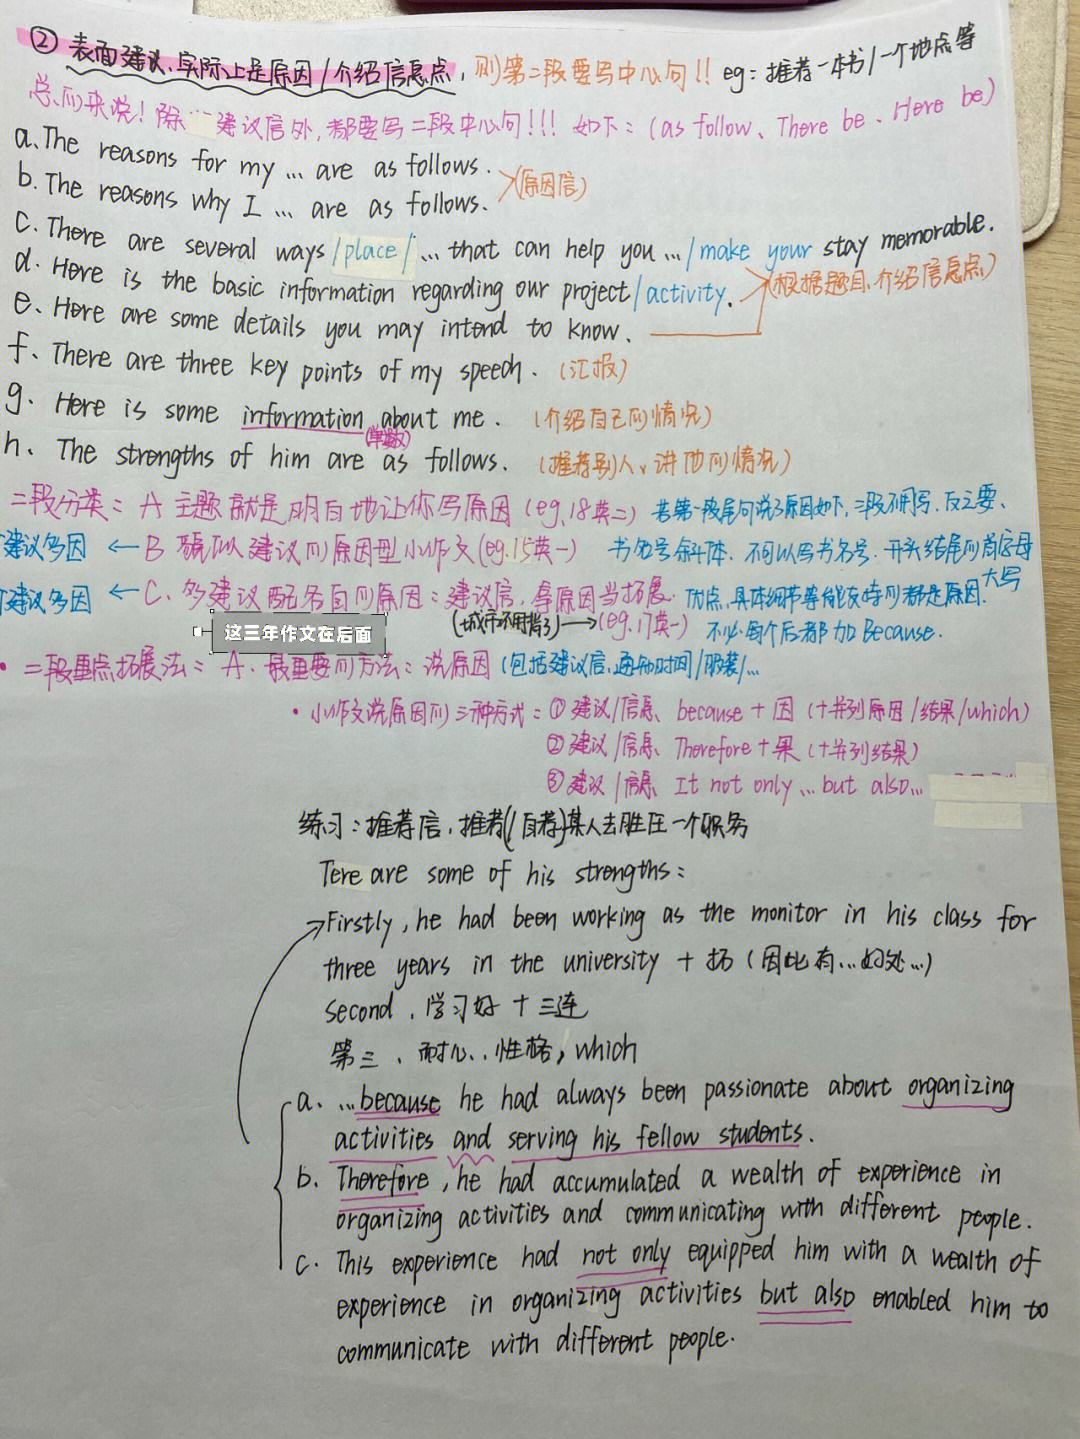 ② 表面建议、实际上是原因/介绍信息点，则第二段要写中心句!! eg：推荐一本书/一个地点等
总的来说！除…建议信外，都要写二段中心句!!! 如下：(as follow、There be、Here be)
a. The reasons for my … are as follows.
b. The reasons why I … are as follows. (原因信)
c. There are several ways/place/… that can help you …/make your stay memorable.
d. Here is the basic information regarding our project/activity. (根据题目、介绍信息点)
e. Here are some details you may intend to know.
f. There are three key points of my speech. (汇报)
g. Here is some information about me. (介绍自己的情况)
(单数)
h. The strengths of him are as follows. (推荐别人、讲他的情况)
二段分类：A 主题就是明白地让你写原因 (eg.18英二) 若第一段尾句说了原因如下，二段不用写. 反之要、
建议多因 ← B 貌似建议的原因型小作文(eg.15英一) 书名号斜体. 不可以写书名号. 开头结尾的首字母
建议多因 ← C. 多建议配各自的原因：建议信，拿原因当拓展. 优点，具体细节等能支持的都是原因. 大写
(城市不用背了) → (eg.17英一) 不必每个后都加 Because.
这三年作文在后面
• 二段重点拓展法：A. 最重要的方法：说原因 (包括建议信、通知时间/服装/…
• 小作文说原因的三种方式：① 建议/信息、because + 因 (+并列原因/结果/which)
② 建议/信息、Therefore + 果 (+并列结果)
③ 建议/信息、It not only … but also…
练习：推荐信，推荐(/自荐)某人去胜任一个职务
Tere are some of his strengths：
Firstly, he had been working as the monitor in his class for
three years in the university + 拓 (因此有…好处…)
second，学习好 + 三连
第三、耐心、性格，which
a. …because he had always been passionate about organizing
activities and serving his fellow students.
b. Therefore, he had accumulated a wealth of experience in
organizing activities and communicating with different people.
c. This experience had not only equipped him with a wealth of
experience in organizing activities but also enabled him to
communicate with different people.